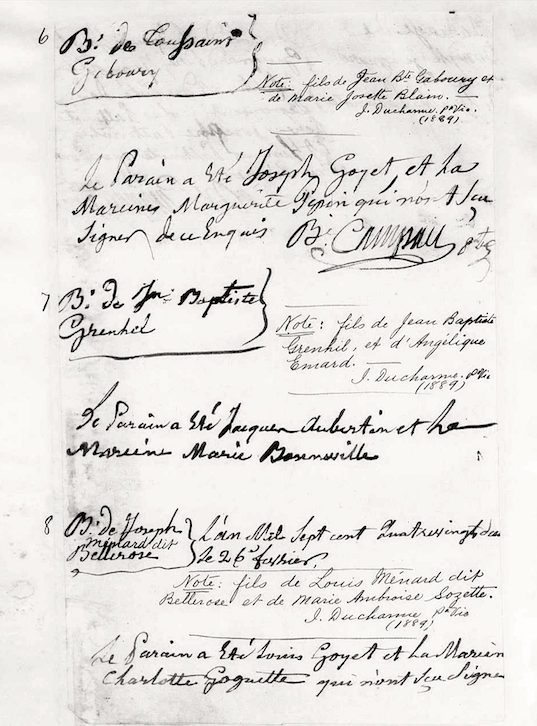 6 Bt. des Toussaint
Goboury
Note: fils de Jean Bte Gaboury et
de Marie Josette Blain.
J. Ducharme, Ptre Vic.
(1889)
Le Parain a Eté Joseph Goyet, et la
Mareines Marguerite Pepin qui nont Sçu
Signer de ce Enquis
Campau Ptre
7 Bt. de Jn. Baptiste
Grenhel
Note: fils de Jean Baptiste
Grenhil, et d'Angélique
Emard.
J. Ducharme. Ptre Vic
(1889)
Le Parain a Eté Jacques Aubertin et La
Mareine Marie Bonneville
8 Bt. de Joseph
Ménard dit
Bellerose
L'an Mil Sept cent Quatrevingts
Le 26e fevrier.
Note: fils de Louis Ménard dit
Bellerose et de Marie Ambroise Sozette.
J. Ducharme, Ptre Vic
(1889)
Le Parain a Eté Louis Goyet et La Marein
Charlotte Goguette qui n'ont Sçu Signe